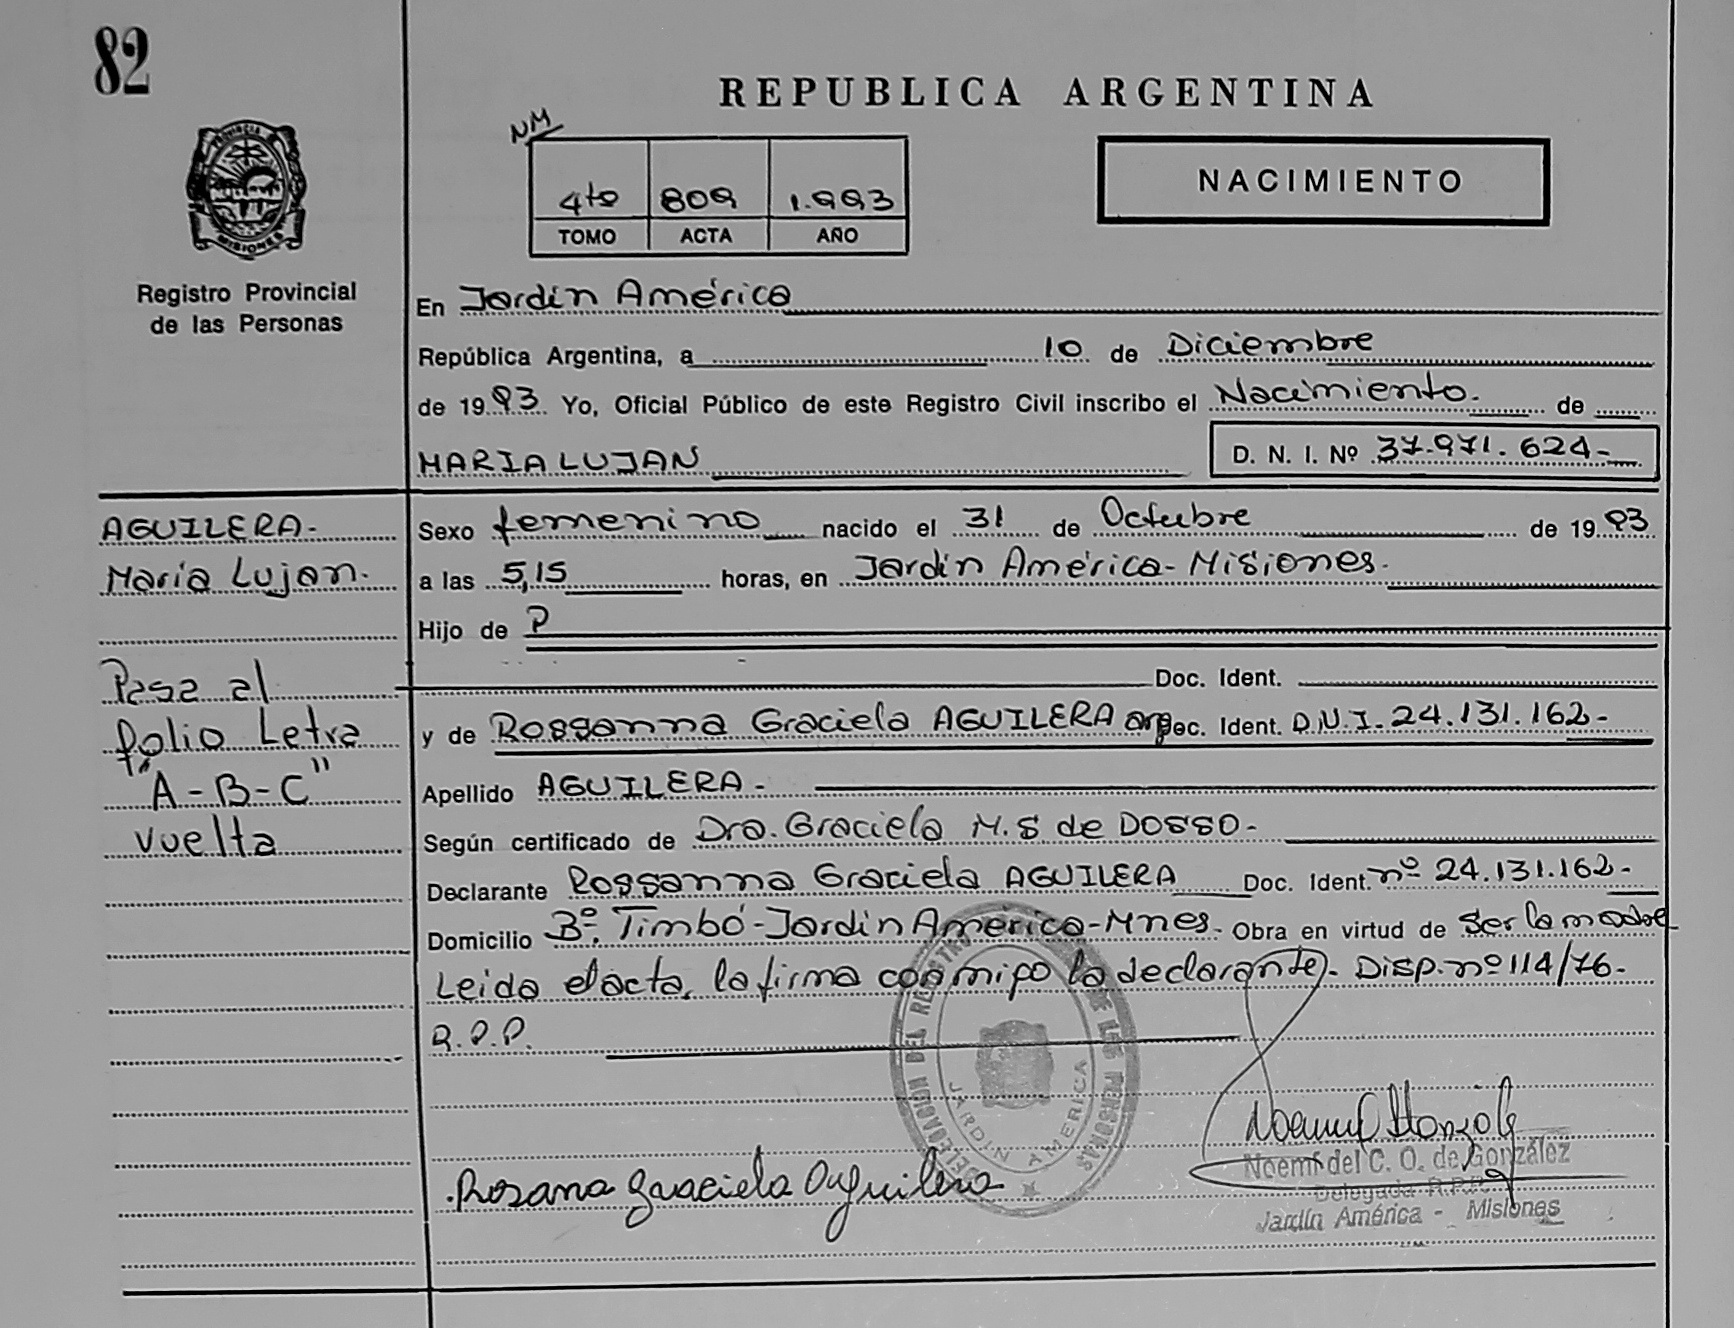 82
REPUBLICA ARGENTINA
NM
4to 809 1.993
TOMO ACTA AÑO
NACIMIENTO
PROVINCIA
MISIONES
Registro Provincial
de las Personas
En Jardín América
República Argentina, a 10 de Diciembre
de 1993 Yo, Oficial Público de este Registro Civil inscribo el Nacimiento. de
MARIA LUJAN D. N. I. Nº 37.971.624-
AGUILERA-
María Lujan.
Pasa al
folio Letra
"A-B-C"
vuelta
Sexo femenino nacido el 31 de Octubre de 1993
a las 5,15 horas, en Jardín América-Misiones.
Hijo de
Doc. Ident.
y de Rossanna Graciela AGUILERA arg Doc. Ident. D.N.I-24.131.162-
Apellido AGUILERA-
Según certificado de Dra. Graciela M.S de DOSSO-
Declarante Rossanna Graciela AGUILERA Doc. Ident. nº 24.131.162-
Domicilio Bº. Timbó-Jardín América-Mnes. Obra en virtud de Ser la madre
Leida el acta, la firma conmigo la declarante- Disp. nº 114/76-
R.P.P.
DELEGACION DEL REGISTRO DE LAS PERSONAS
JARDIN AMERICA
Rosana Graciela Aguilera
Noemí del C. O. de González
Delegada R.P.P.
Jardín América - Misiones